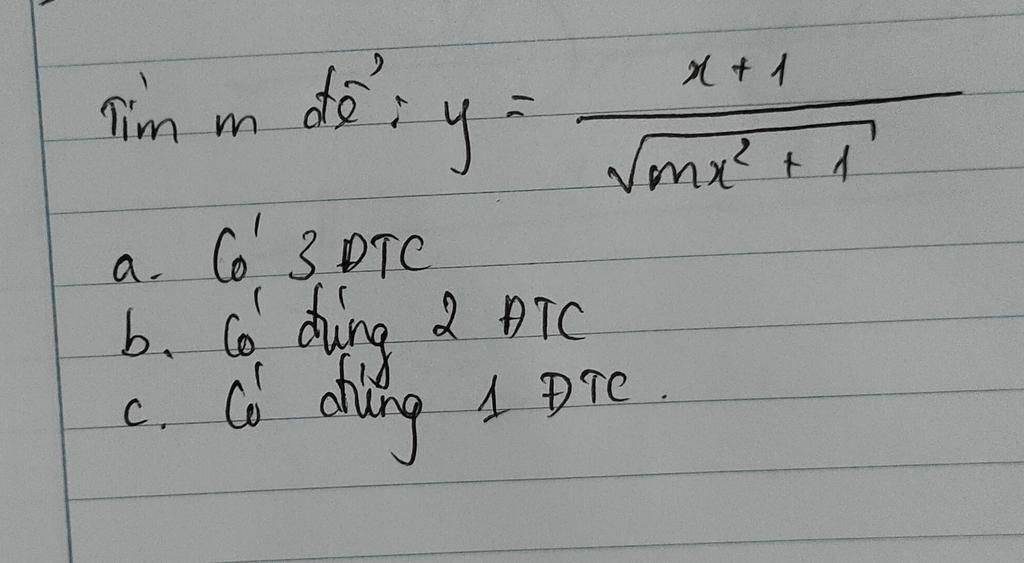 Tìm m để : y = \frac{x + 1}{\sqrt{mx² + 1}}
a. Có 3 ĐTC
b. Có đúng 2 ĐTC
c. Có đúng 1 ĐTC.